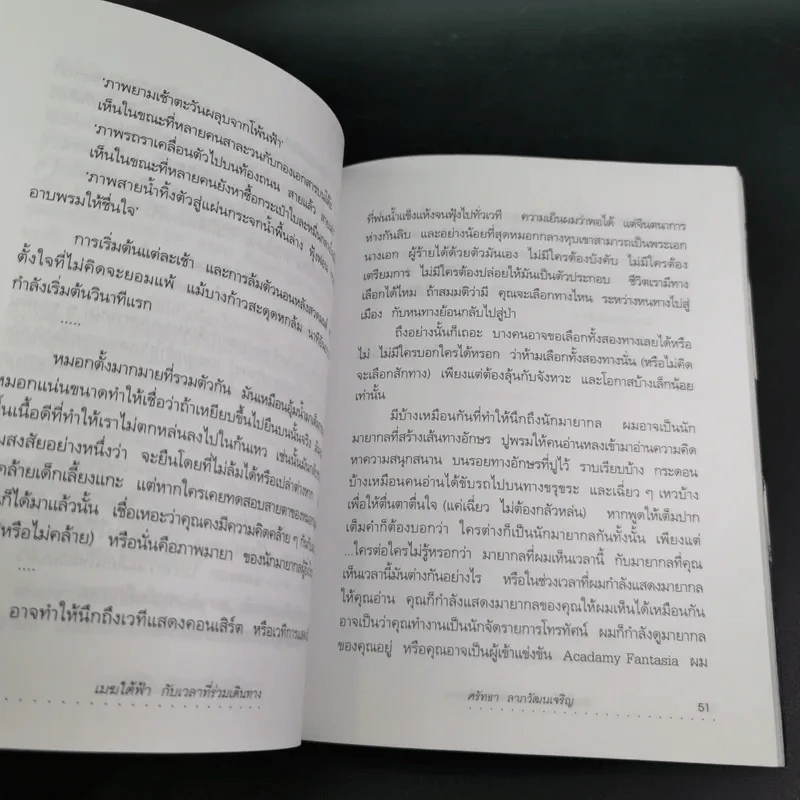 'ภาพยามเช้าตะวันผลุบจากโพ้นฟ้า'
เห็นในขณะที่หลายคนสาละวนกับกองเอกสารบนโต๊ะ
'ภาพรถราเคลื่อนตัวไปบนท้องถนน สายแล้ว
เห็นในขณะที่หลายคนยังหาซื้อกระเป๋าใบละหมื่น
'ภาพสายน้ำทิ้งตัวสู่แผ่นกระจกน้ำพื้นล่าง ฟุ้ง
อาบพรมให้ชื่นใจ'
การเริ่มต้นแต่ละเช้า และการล้มตัวนอนหลัง
ตั้งใจที่ไม่คิดจะยอมแพ้ แม้บางก้าวสะดุดหกล้ม นาที
กำลังเริ่มต้นวินาทีแรก
.....
หมอกตั้งมากมายที่รวมตัวกัน มันเหมือนอุ้มน้ำ
หมอกแน่นขนาดทำให้เชื่อว่าถ้าเหยียบขึ้นไปยืนบนนั้นจริง
เนื้อดีที่ทำให้เราไม่ตกหล่นลงไปในก้นเหว เช่นนั้น
สงสัยอย่างหนึ่งว่า จะยืนโดยที่ไม่ล้มได้หรือเปล่า
คล้ายเด็กเลี้ยงแกะ แต่หากใครเคยทดสอบสายตาของ
ก็ได้มาแล้วนั้น เชื่อเหอะว่าคุณคงมีความคิดคล้าย ๆ กัน
(หรือไม่คล้าย) หรือนั่นคือภาพมายา ของนักมายากล
.....
อาจทำให้นึกถึงเวทีแสดงคอนเสิร์ต หรือเวที
เมฆใต้ฟ้า กับเวลาที่ร่วมเดินทาง
ที่พ่นน้ำแข็งแห้งจนฟุ้งไปทั่วเวที ความเย็นผมว่าพอได้ แต่จินตนาการ
ห่างกันลิบ และอย่างน้อยที่สุดหมอกกลางหุบเขาสามารถเป็นพระเอก
นางเอก ผู้ร้ายได้ด้วยตัวมันเอง ไม่มีใครต้องบังคับ ไม่มีใครต้อง
เตรียมการ ไม่มีใครต้องปล่อยให้มันเป็นตัวประกอบ ชีวิตเรามีทาง
เลือกได้ไหม ถ้าสมมติว่ามี คุณจะเลือกทางไหน ระหว่างหนทางไปสู่
เมือง กับหนทางย้อนกลับไปสู่ป่า
ถึงอย่างนั้นก็เถอะ บางคนอาจขอเลือกทั้งสองทางเลยได้หรือ
ไม่ ไม่มีใครบอกใครได้หรอก ว่าห้ามเลือกทั้งสองทางนั่น (หรือไม่คิด
จะเลือกสักทาง) เพียงแต่ต้องลุ้นกับจังหวะ และโอกาสบ้างเล็กน้อย
เท่านั้น
มีบ้างเหมือนกันที่ทำให้นึกถึงนักมายากล ผมอาจเป็นนัก
มายากลที่สร้างเส้นทางอักษร ปูพรมให้คนอ่านหลงเข้ามาอ่านความคิด
หาความสนุกสนาน บนรอยทางอักษรที่ปูไว้ ราบเรียบบ้าง กระดอน
บ้างเหมือนคนอ่านได้ขับรถไปบนทางขรุขระ และเฉี่ยว ๆ เหวบ้าง
เพื่อให้ตื่นตาตื่นใจ (แค่เฉี่ยว ไม่ต้องกลัวหล่น) หากพูดให้เต็มปาก
เต็มคำก็ต้องบอกว่า ใครต่างก็เป็นนักมายากลกันทั้งนั้น เพียงแต่
...ใครต่อใครไม่รู้หรอกว่า มายากลที่ผมเห็นเวลานี้ กับมายากลที่คุณ
เห็นเวลานี้มันต่างกันอย่างไร หรือในช่วงเวลาที่ผมกำลังแสดงมายากล
ให้คุณอ่าน คุณก็กำลังแสดงมายากลของคุณให้ผมเห็นได้เหมือนกัน
อาจเป็นว่าคุณทำงานเป็นนักจัดรายการโทรทัศน์ ผมก็กำลังดูมายากล
ของคุณอยู่ หรือคุณอาจเป็นผู้เข้าแข่งขัน Acadamy Fantasia ผม
ศรัทธา ลาภวัฒนเจริญ
51